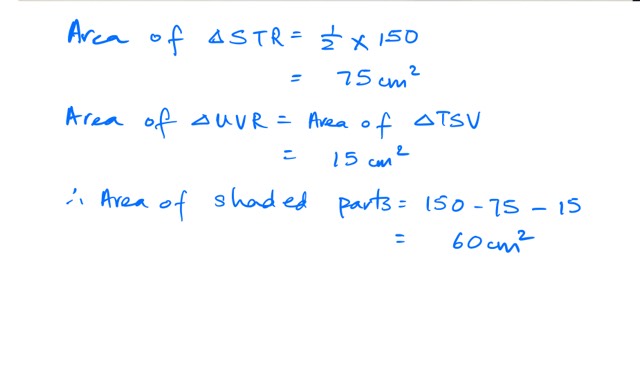 Area of △STR = 1/2 × 150
= 75 cm²
Area of △UVR = Area of △TSV
= 15 cm²
∴ Area of shaded parts = 150 - 75 - 15
= 60 cm²